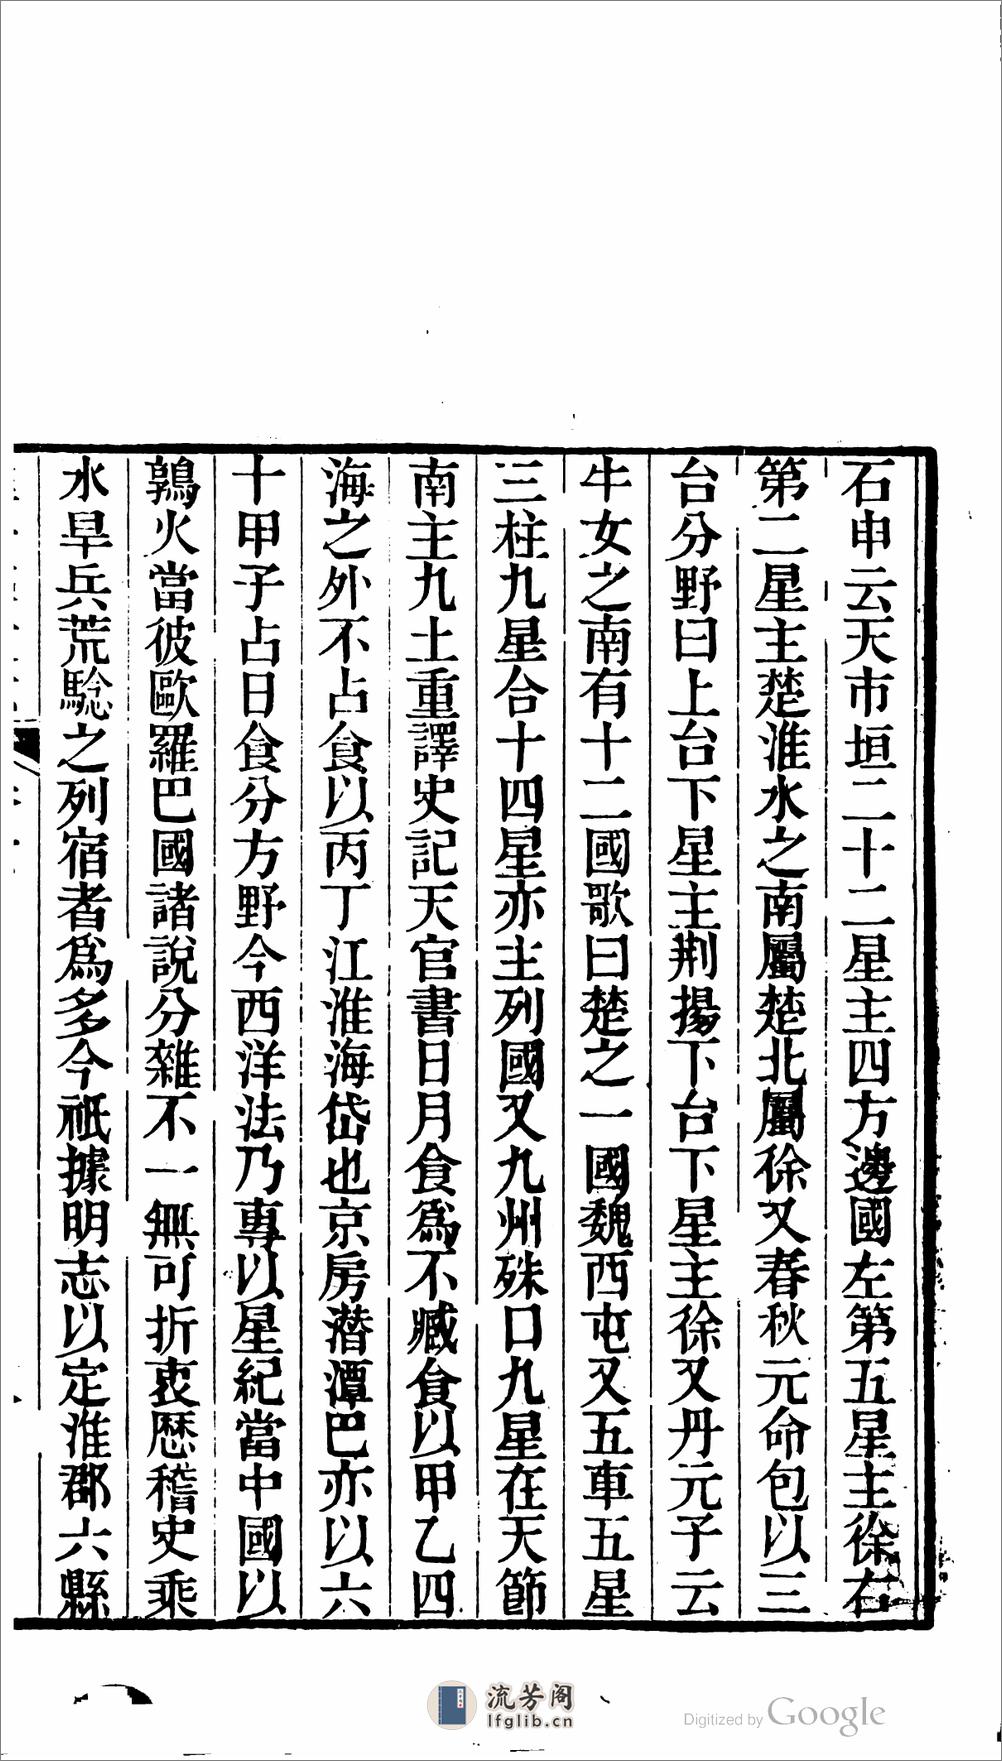 石申云天市垣二十二星主四方邊國左第五星主徐右
第二星主楚淮水之南屬楚北屬徐又春秋元命包以三
台分野曰上台下星主荆揚下台下星主徐又丹元子云
牛女之南有十二國歌曰楚之一國魏西屯又五車五星
三柱九星合十四星亦主列國又九州殊口九星在天節
南主九土重譯史記天官書日月食爲不臧食以甲乙四
海之外不占食以丙丁江淮海岱也京房潛潭巴亦以六
十甲子占日食分方野今西洋法乃專以星紀當中國以
鶉火當彼歐羅巴國諸說分雜不一無可折衷歷稽史乘
水旱兵荒騐之列宿者爲多今祇據明志以定淮郡六縣
流芳阁
lfglib.cn
Digitized by Google